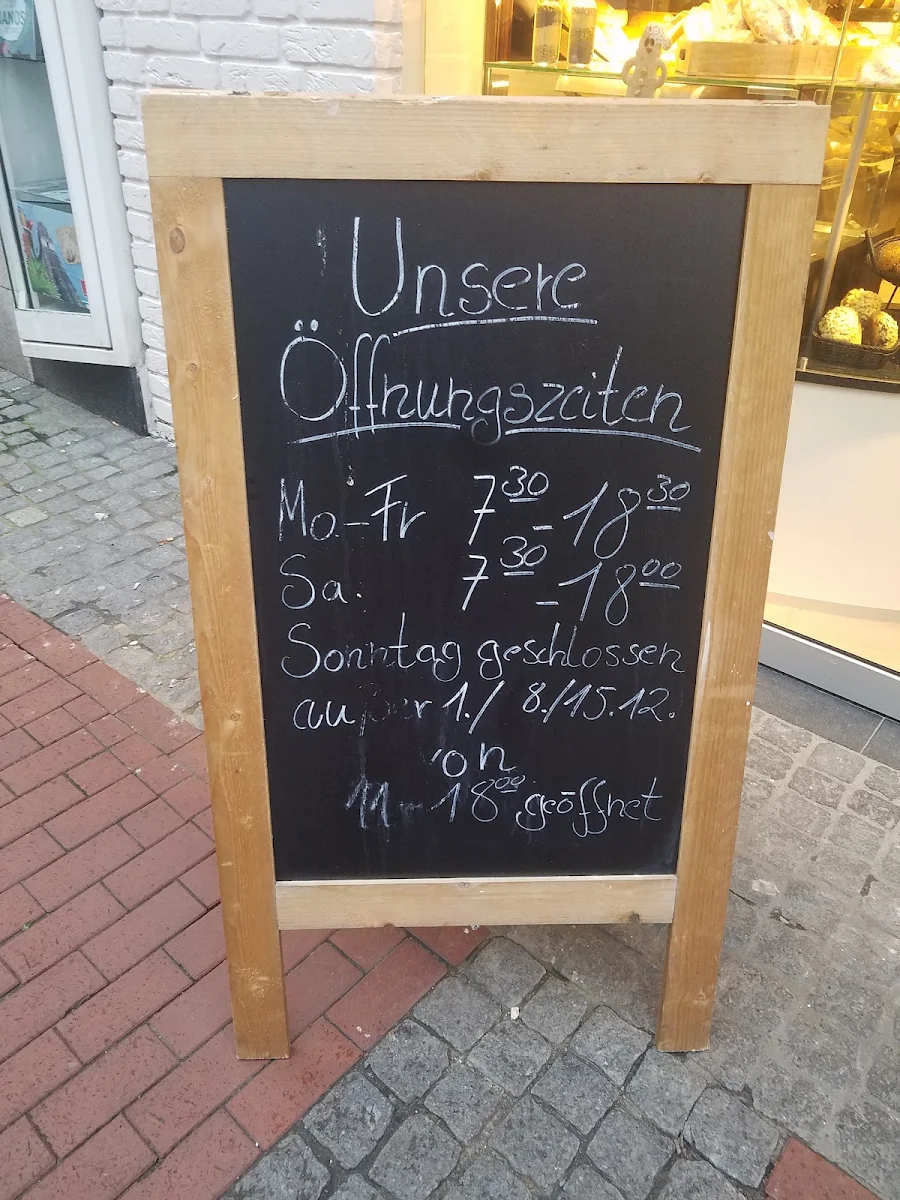 Unsere
Öffnungszeiten
Mo-Fr 7³⁰-18³⁰
Sa. 7³⁰-18⁰⁰
Sonntag geschlossen
außer 1./ 8./15.12.
von
11 - 18⁰⁰ geöffnet